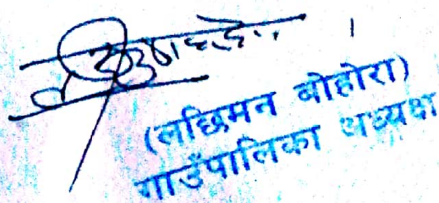 (लछिमन बोहोरा)
गाउँपालिका अध्यक्ष